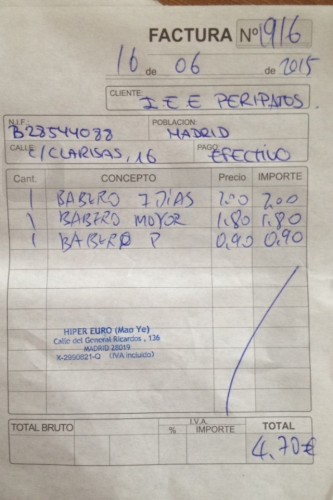 FACTURA Nº 1916
16 de 06 de 2015
CLIENTE: I.E.E PERIPATOS.
N.I.F. B28544088 POBLACION: MADRID
CALLE: C/CLARISAS, 16 PAGO: EFECTIVO
Cant. CONCEPTO Precio IMPORTE
1 BABERO 7 DÍAS 2,00 2,00
1 BABERO MOYOR 1,80 1,80
1 BABERO P 0,90 0,90
HIPER EURO (Mao Ye)
Calle del General Ricardos , 136
MADRID 28019
X-2990821-Q (IVA incluido)
TOTAL BRUTO % I.V.A. IMPORTE TOTAL
4,70€